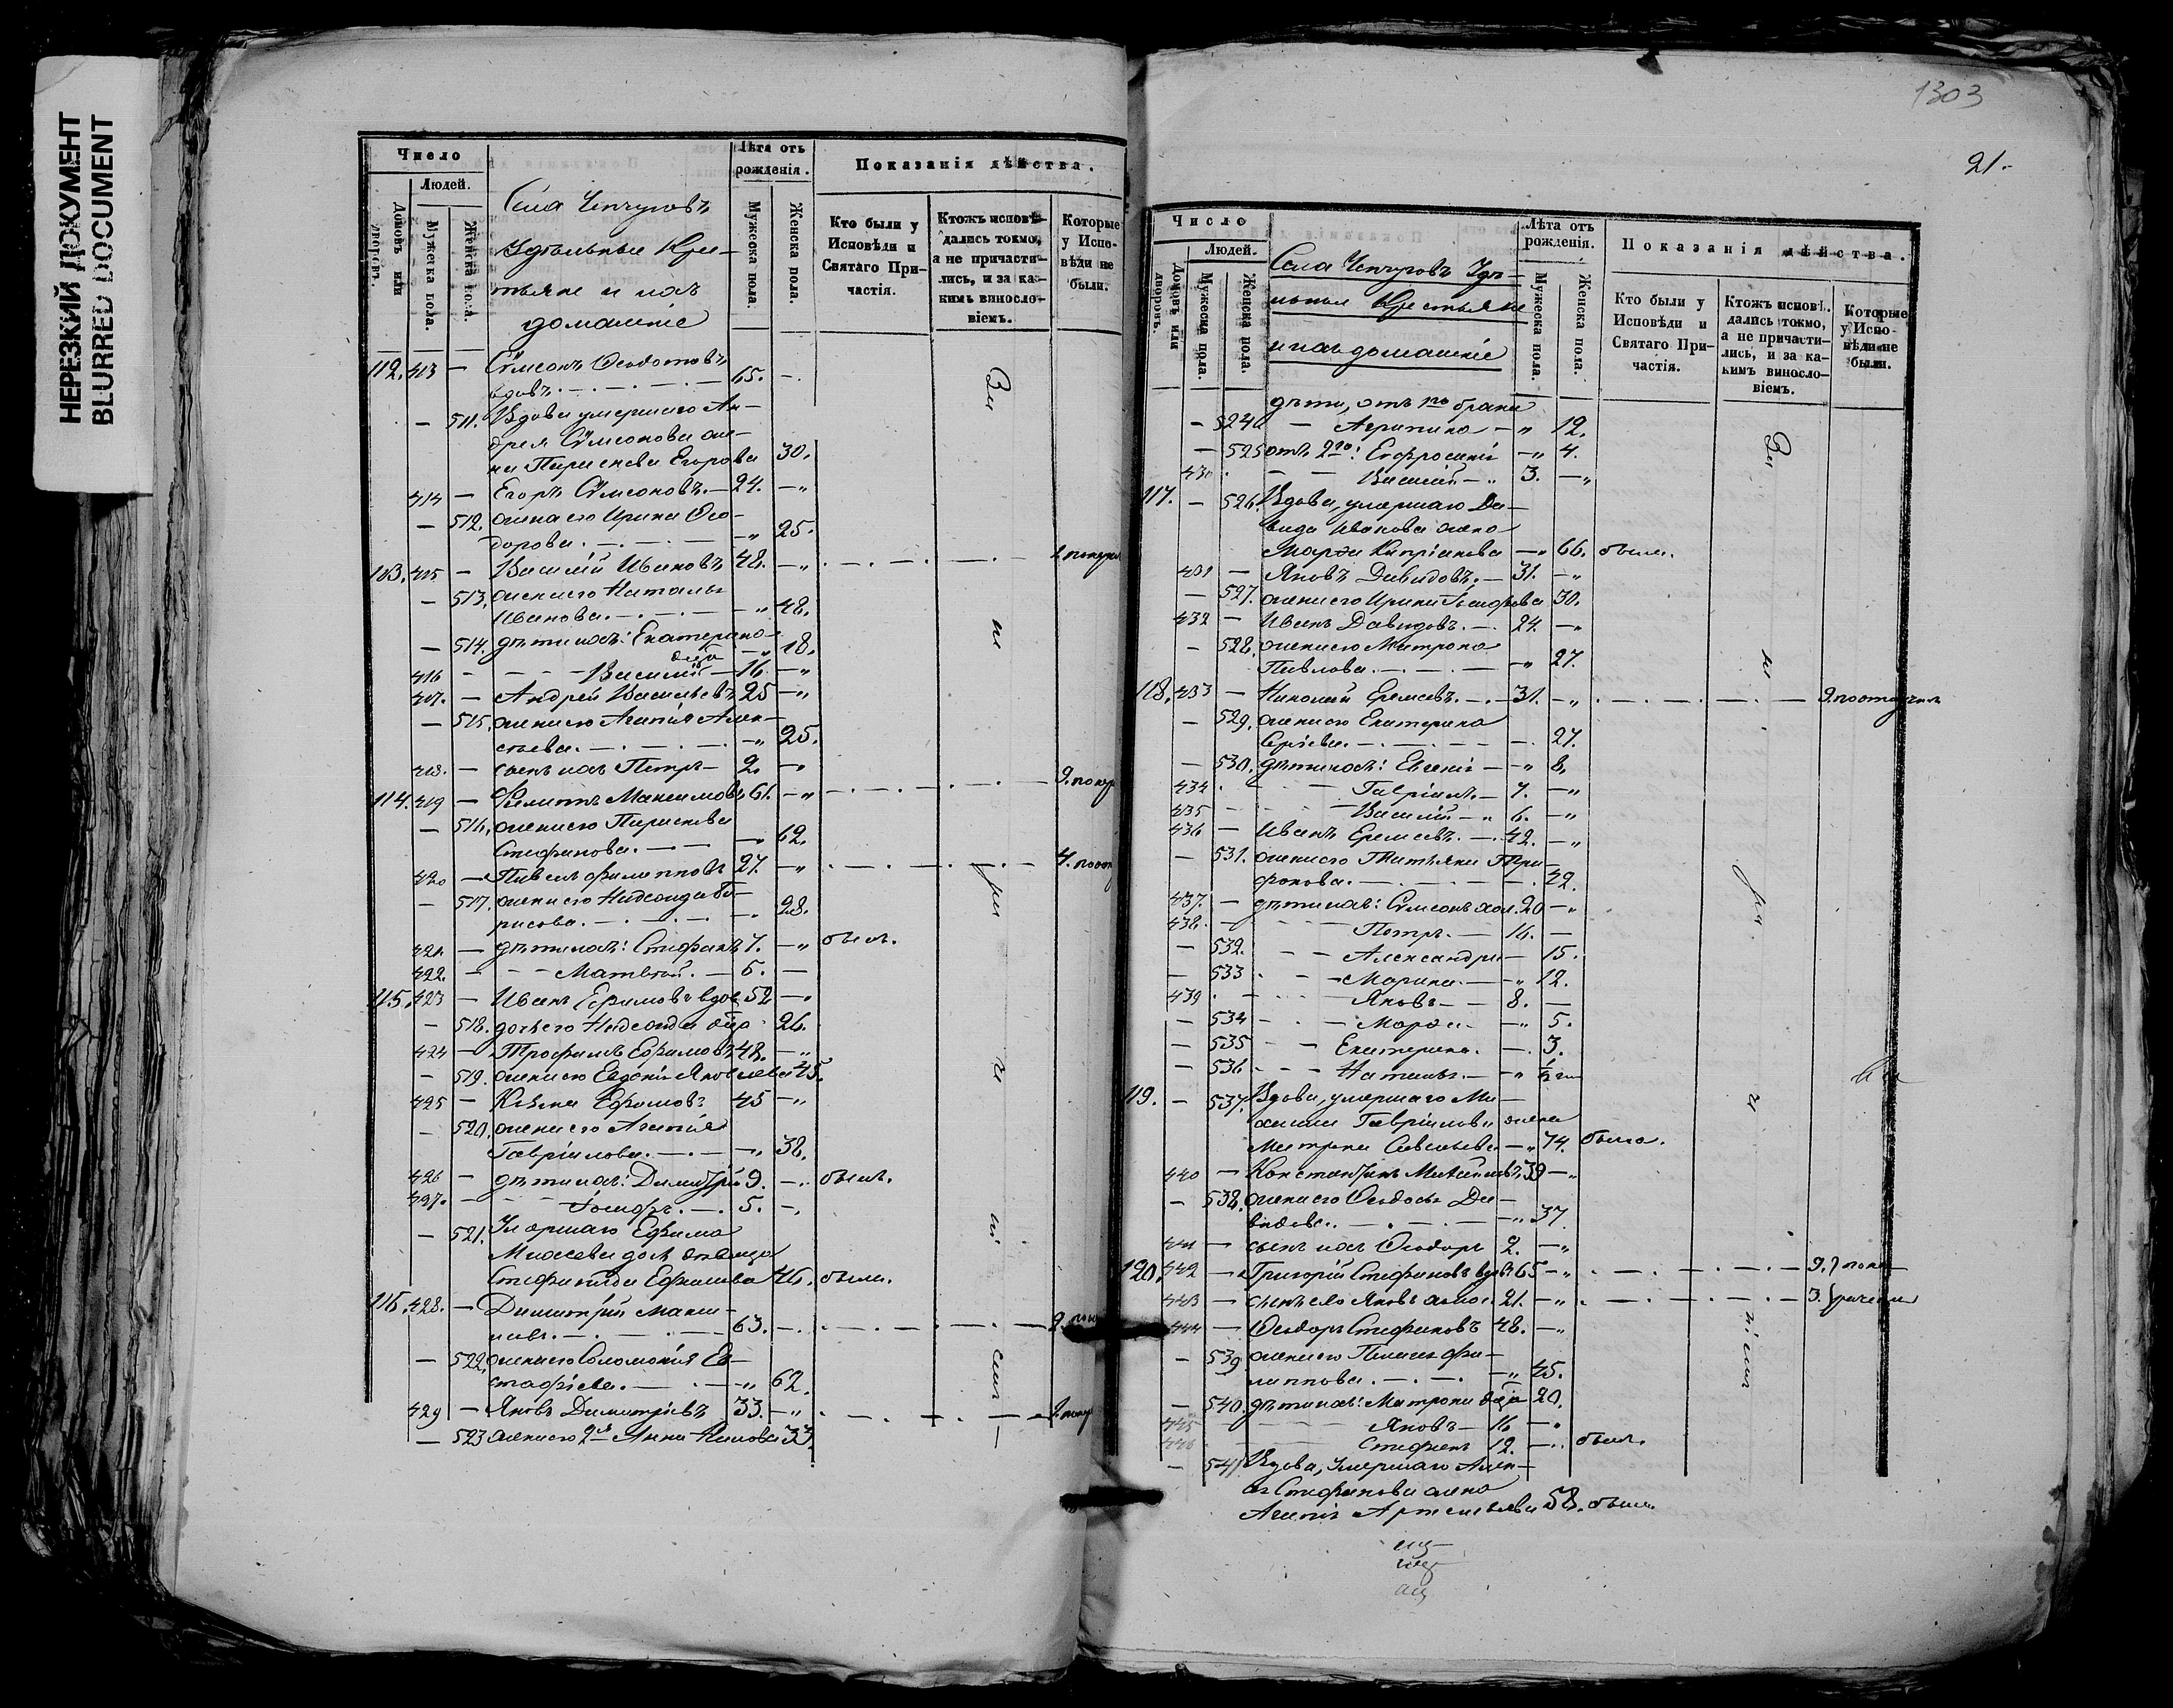 НЕРЕЗКИЙ ДОКУМЕНТ
BLURRED DOCUMENT
Число
Людей.
Домовъ или дворовъ.
Мужеска пола.
Женска пола.
Села Чепчуговъ
Удѣльные Кре-
стьяне и ихъ
домашніе
Лѣта отъ рожденія.
Мужеска пола.
Женска пола.
Показанія дѣйства.
Кто были у Исповѣди и Святаго Причастія.
Ктожъ исповѣдались токмо, а не причастились, и за какимъ винословіемъ.
Которые у Исповѣди не были.
112. 413 — Сѵмеонъ Ѳеодотовъ
вдовъ. 65. —
— 511. Вдова умершаго Ан-
дрея Сѵмеонова же-
на Параскева Егорова 30.
414 — Егоръ Сѵмеоновъ. — 24. — „
— 512. жена его Ирина Ѳео-
дорова. — „ 25.
113. 415 — Василій Ивановъ 48. — „
— 513. жена его Наталья
Иванова. — „ 48.
— 514. дѣти ихъ: Екатерина
— „ 18.
416 — Василій — 16. — „
417. — Андрей Васильевъ 25 — „
— 515. жена его Агапія Алек-
сѣева. — „ 25.
418. — сынъ ихъ Петръ — 2. — „
114. 419 — Филиппъ Максимовъ 61. — „
— 516. жена его Параскева
Стефанова. — 62.
420 — Павелъ Филипповъ 27. — „
— 517. жена его Надежда Бо-
рисова. — „ 28.
421. — дѣти ихъ: Стефанъ 7. — „ былъ.
422. — Матвѣй. — 5. —
115. 423 — Иванъ Ефимовъ вдов 52 — „
— 518. дочь его Надежда 26.
424 — Трофимъ Ефимовъ 48. — „
— 519. жена его Евдокія Яковлева 45.
425 — Козма Ефимовъ 45 — „
— 520. жена его Агапія
Гавріилова. — „ 38.
426 — дѣти ихъ: Димитрій 9. — былъ.
427. — Іосифъ. — 5. —
— 521. Умершаго Ефима
Моисеева дочь дѣвица
Стефанида Ефимова 46. была.
116. 428. — Димитрій Макси-
мовъ. 63. —
— 522. жена его Соломонія Ев-
стафіева. — „ 62.
429 — Яковъ Димитріевъ 33. — „
— 523 жена его 2я Анна 33.
1303
21.
Число
Людей.
Домовъ или дворовъ.
Мужеска пола.
Женска пола.
Села Чепчуговъ Удѣ-
льные Крестьяне
и ихъ домашніе
Лѣта отъ рожденія.
Мужеска пола.
Женска пола.
Показанія дѣйства.
Кто были у Исповѣди и Святаго Причастія.
Ктожъ исповѣдались токмо, а не причастились, и за какимъ винословіемъ.
Которые у Исповѣди не были.
дѣти, отъ 1го брака
— 524 — Агрипина — „ 12.
— 525 отъ 2го: Евфросинія — „ 4.
430 — Василій — 3. — „
117. — 526. Вдова, умершаго Да-
вида Иванова жена
Марѳа Кипріанова — „ 66. была.
431 — Яковъ Давидовъ. — 31. — „
— 527. жена его Ирина 30.
432 — Иванъ Давидовъ. — 24. — „
— 528. жена его Матрона
Павлова. — „ 27.
118. 433 — Николай Еремеевъ. — 31. — „
— 529. жена его Екатерина
Сергіева. — 27.
— 530. дѣти ихъ: Евгенія — „ 8.
434 — Гавріилъ. — 7. — „
435 — Василій — 6. — „
436 — Иванъ Еремеевъ. — 42. — „
— 531. жена его Татьяна Три-
фонова. — 42.
437. — дѣти ихъ: Сѵмеонъ хол. 20 — „
438. — Петръ. — 16. —
— 532. — Александра — 15.
— 533 — Марина. — „ 12.
439. — Яковъ — 8. —
— 534 — Марѳа — „ 5.
— 535 — Екатерина. — 3.
— 536 — Наталья. — „ ½
119. — 537. Вдова, умершаго Ми-
хаила Гавріилова жена
Матрона Савельева — „ 74. была.
440 — Константинъ Михайловъ 39 — „
— 538. жена его Ѳеодосія Да-
видова. — „ 37
441 — сынъ ихъ Ѳеодоръ 2. — „
120. 442 — Григорій Стефановъ вдовъ 65 — „
443 — сынъ его Яковъ холос. 21. — „
444 — Ѳеодоръ Стефановъ 48. — „
— 539 жена его Пелагея Фи-
липпова. — „ 45.
— 540. дѣти ихъ: Матрона 20.
445 — Яковъ — 16 — „
446 — Стефанъ 12. — былъ.
— 541 Вдова, умершаго Алек-
сѣя Стефанова жена
Агапія Артемьева 58. была.